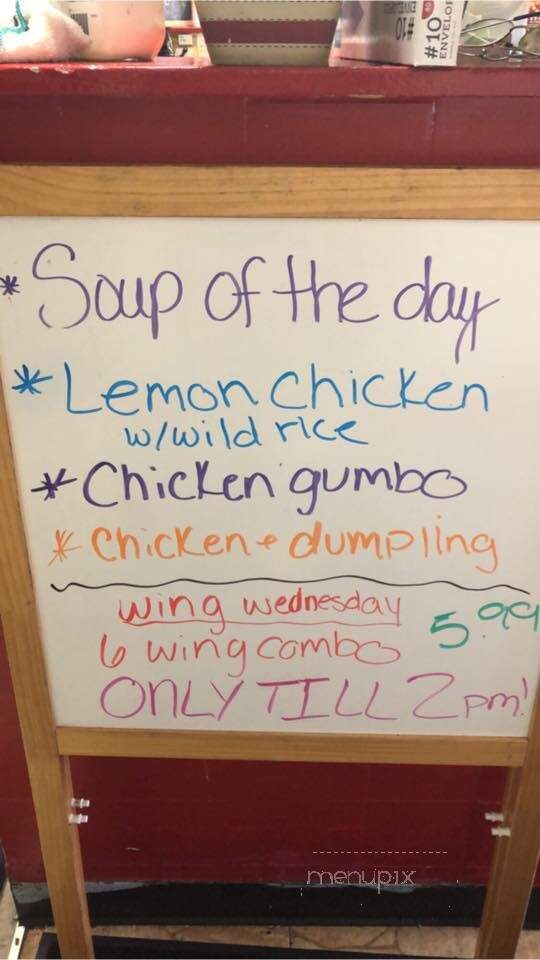 #10
#10
ENVELOP
* Soup of the day
* Lemon Chicken
w/wild rice
* Chicken gumbo
* Chicken + dumpling
wing wednesday
6 wing combo 5.99
ONLY TILL 2pm!
menupix